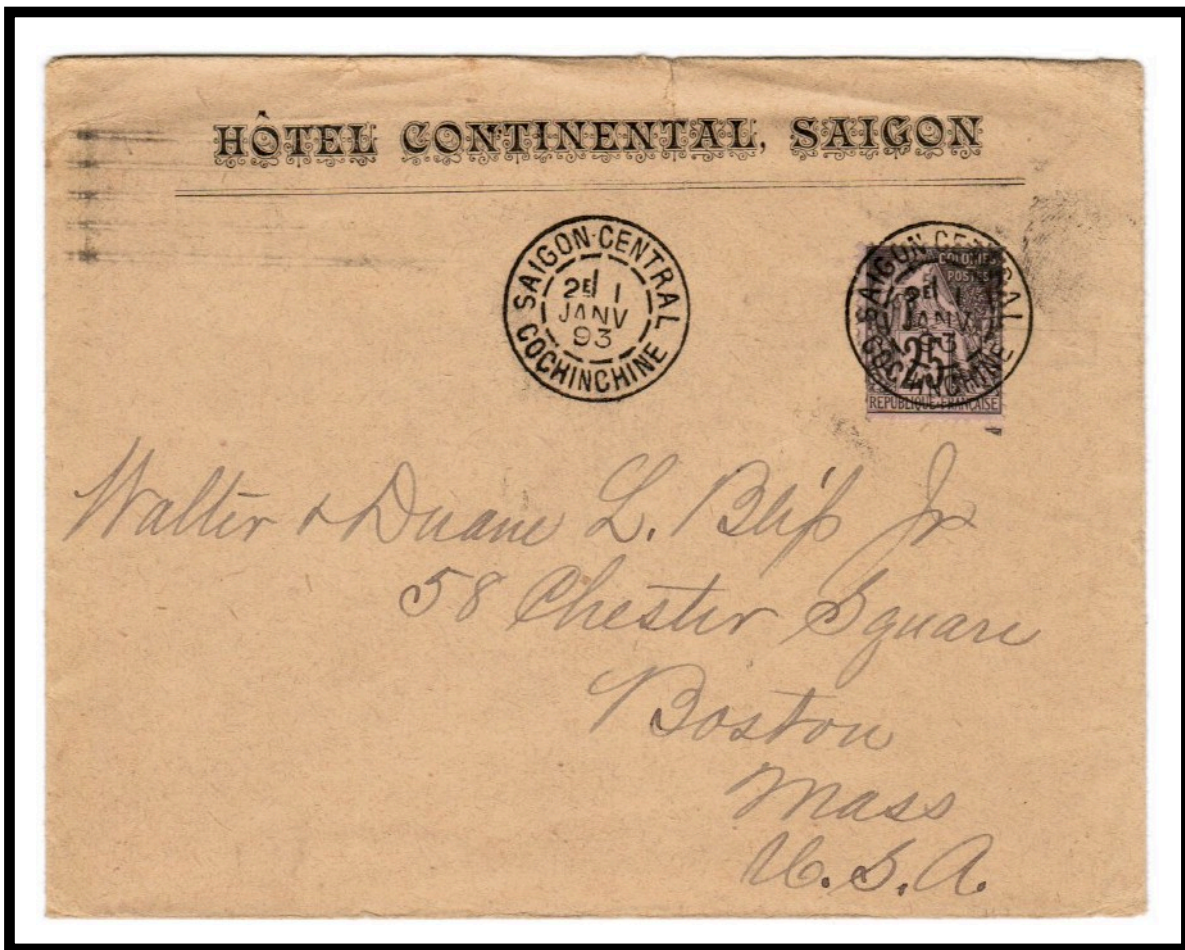 HÔTEL CONTINENTAL, SAIGON
SAIGON-CENTRAL
2E/ 1
JANV
93
COCHINCHINE
SAIGON-CENTRAL
2E/ 1
JANV
93
COCHINCHINE
COLONIES
POSTES
25
REPUBLIQUE FRANÇAISE
Walter & Duane L. Blip Jr
58 Chester Square
Boston
Mass
U.S.A.